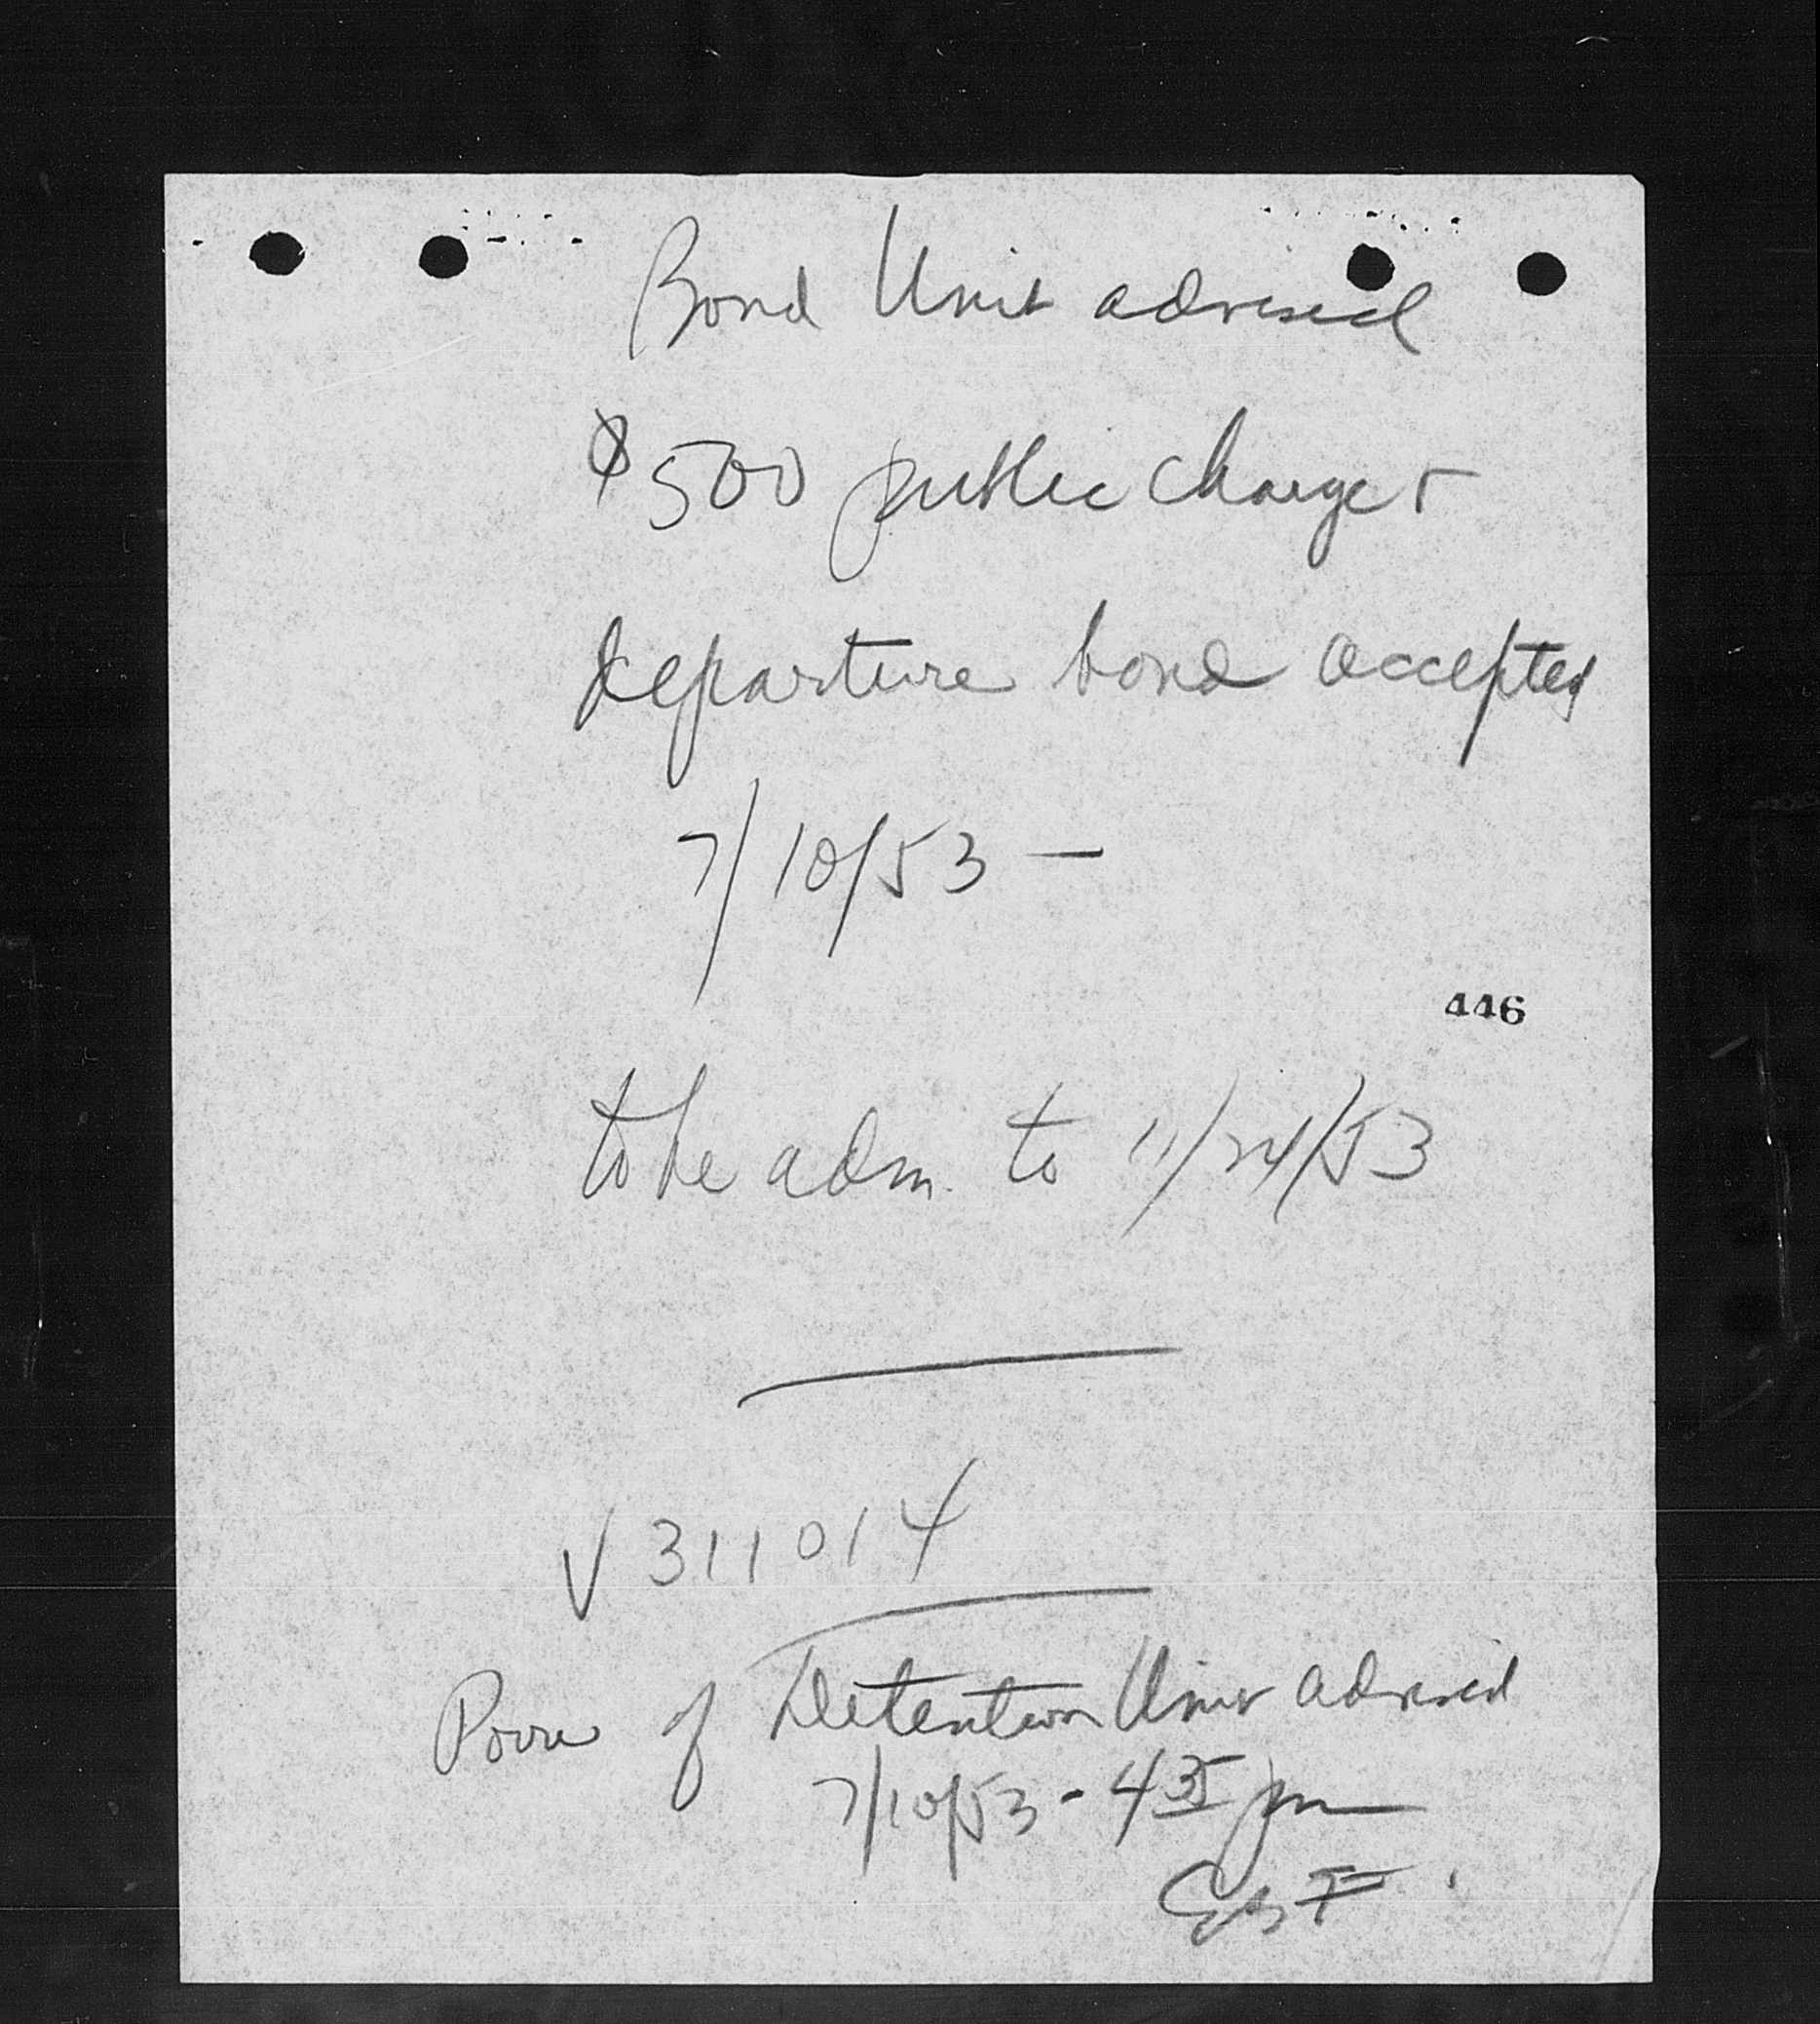 Bond Unit advised
$500 public charge +
departure bond accepted
7/10/53 —
446
to be adm. to 11/24/53
V 311014
of Detention Unit advised
7/10/53 - 4 35 pm